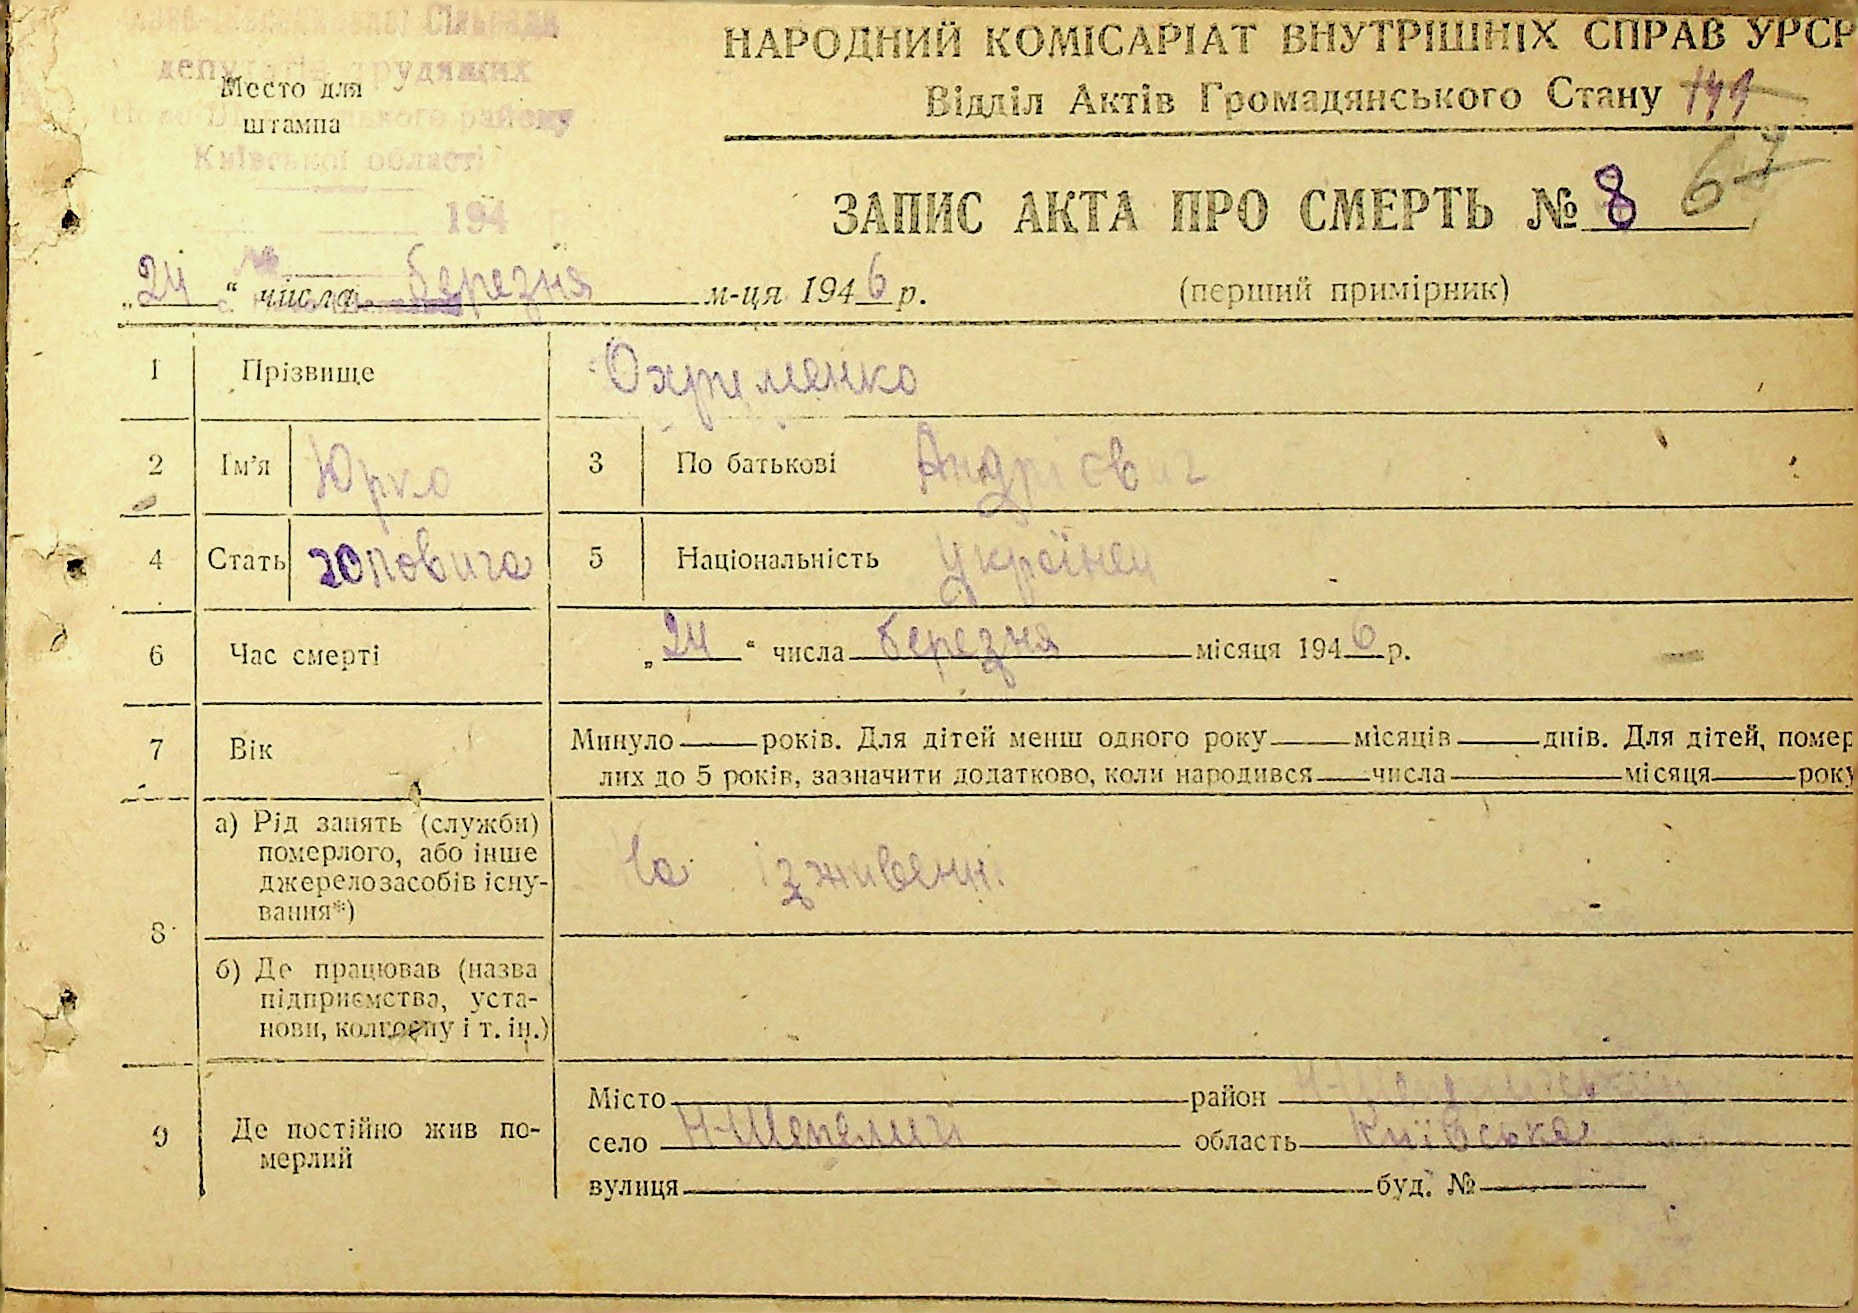 Сільради
депутатів трудящих
району
Київської області
194
Место для
штампа
НАРОДНИЙ КОМІСАРІАТ ВНУТРІШНІХ СПРАВ УРСР
Відділ Актів Громадянського Стану
ЗАПИС АКТА ПРО СМЕРТЬ № 8 67
„24“ числа березня м-ця 1946 р. (перший примірник)
1 Прізвище Охрименко
2 Ім’я Юрко 3 По батькові Андрієвич
4 Стать чоловича 5 Національність українец
6 Час смерті „24“ числа березня місяця 1946 р.
7 Вік Минуло ____ років. Для дітей менш одного року ____ місяців ____ днів. Для дітей, помер
лих до 5 років, зазначити додатково, коли народився ____ числа ____ місяця ____ року
8 а) Рід занять (служби)
померлого, або інше
джерело засобів існу-
вання*)
б) Де працював (назва
підприємства, уста-
нови, колгоспу і т. ін.)
9 Де постійно жив по-
мерлий
Місто ____ район Н-Шепелицький
село Н-Шепеличі область Київська
вулиця ____ буд. № ____